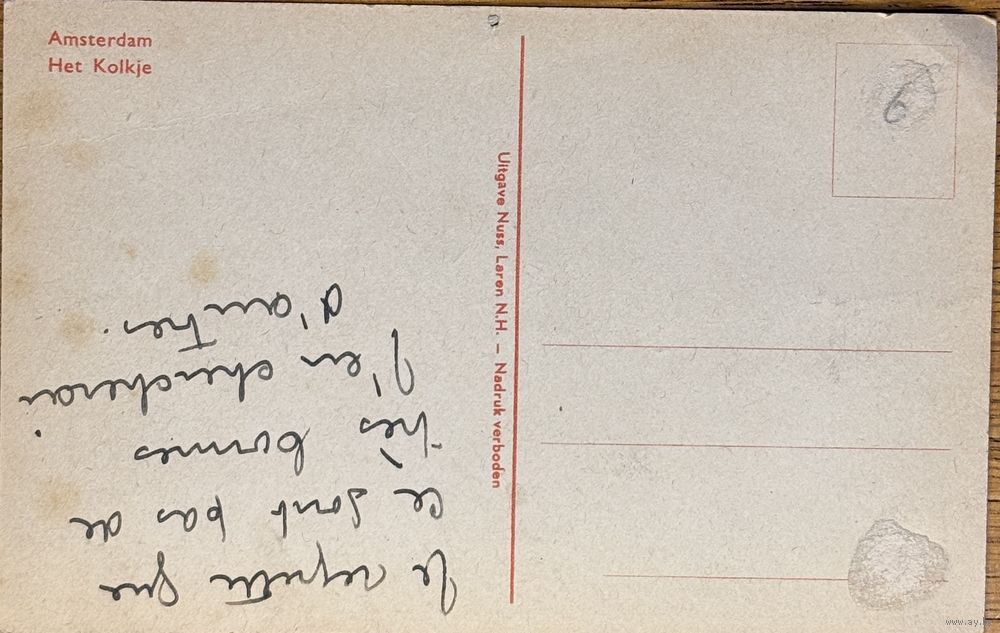 Amsterdam
Het Kolkje
Uitgave Nuss, Laren N.H. — Nadruk verboden
6
Je regrette que
ce sont pas de
très bonnes.
J'en chercherai
d'autres.
www.ay.by